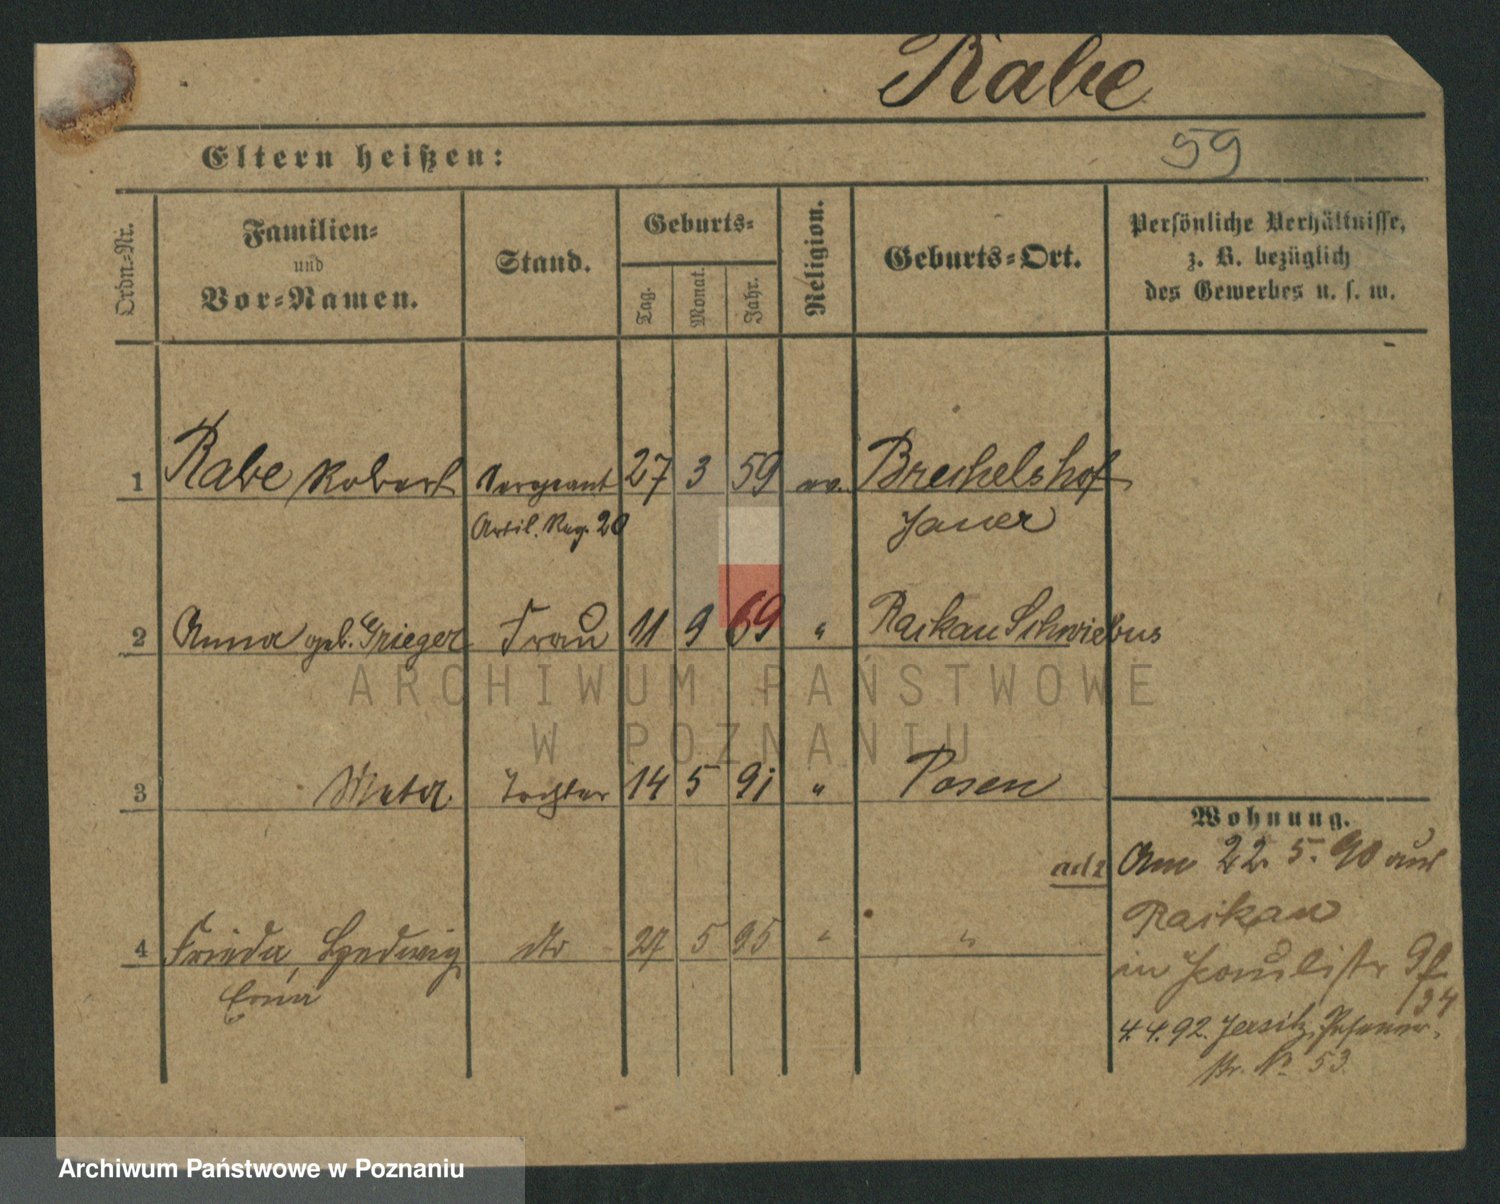 Rabe
Eltern heißen:
59
Ordn=Nr.
Familien=
und
Vor=Namen.
Stand.
Geburts=
Tag.
Monat.
Jahr.
Religion.
Geburts=Ort.
Persönliche Verhältnisse,
z. B. bezüglich
des Gewerbes u. s. w.
1 Rabe Robert Sergeant 27 3 59 ev. Brechelshof
Artil. Reg. 20 Jauer
2 Anna geb. Grieger Frau 11 9 69 " Rackau Schwiebus
ARCHIWUM PAŃSTWOWE
W POZNANIU
3 Meta Tochter 14 5 91 " Posen
Wohnung.
ad 2 Am 22. 5. 90 aus
Rackau
4 Frieda, Hedwig dto 27 5 95 " "
Erna
in 9f
/34
4.4.92. Jersitz, Posener
str. No 53.
Archiwum Państwowe w Poznaniu